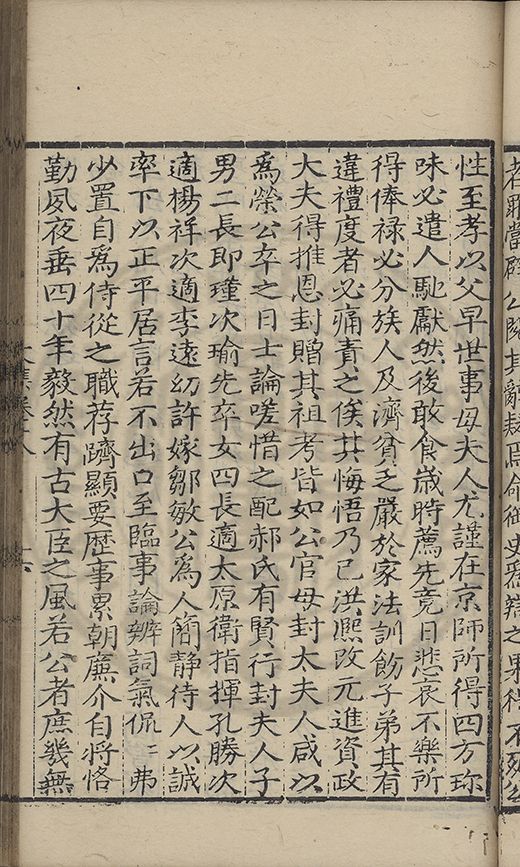 若罪當辟公閱其辭
性至孝以父早世事母夫人尤謹在京師所得四方珎
味必遣人馳獻然後敢食歲時薦先竟日悲哀不樂所
得俸禄必分族人及濟貧乏嚴於家法訓飭子弟其有
違禮度者必痛責之俟其悔悟乃已洪熈改元進資政
大夫得推恩封贈其祖考皆如公官母封太夫人咸以
為榮公卒之日士論嗟惜之配郝氏有賢行封夫人子
男二長即瑾次瑜先卒女四長適太原衛指揮孔勝次
適楊祥次適李遠㓜許嫁鄒敏公為人簡静待人以誠
率下以正平居言若不出口至臨事論辨詞氣侃〻弗
少置自為侍從之職荐躋顯要歷事累朝廉介自將恪
勤夙夜垂四十年毅然有古大臣之風若公者庶幾無